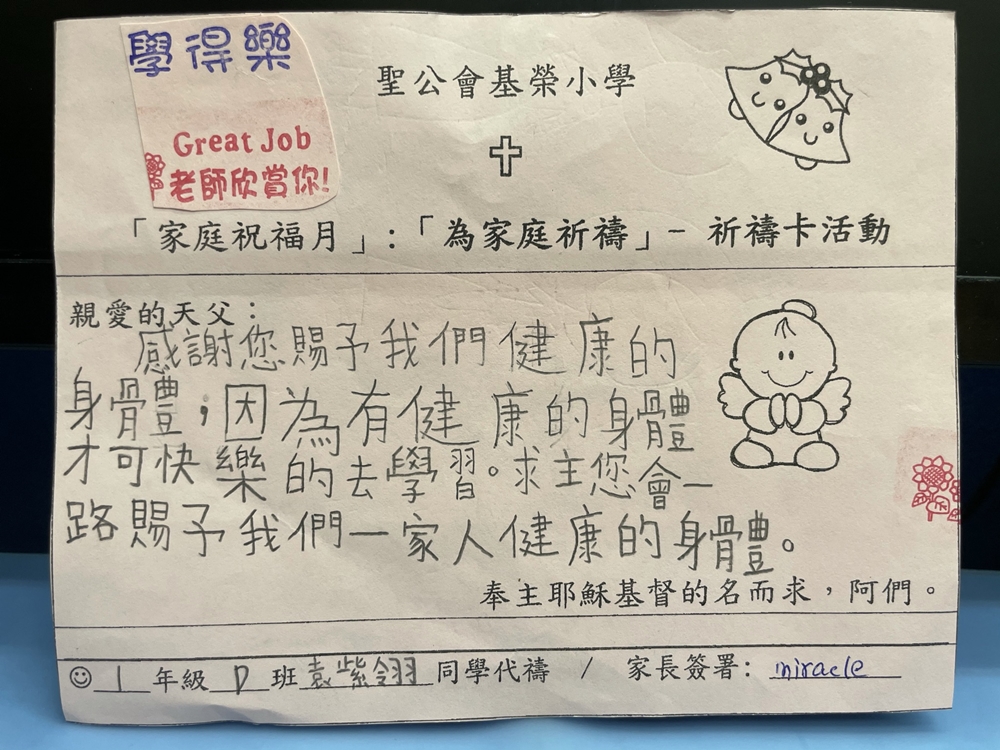 學得樂
Great Job
老師欣賞你!
聖公會基榮小學
「家庭祝福月」:「為家庭祈禱」- 祈禱卡活動
親愛的天父：
感謝您賜予我們健康的
身體，因為有健康的身體
才可快樂的去學習。求主您會一
路賜予我們一家人健康的身體。
奉主耶穌基督的名而求，阿們。
☺ 1 年級 D 班袁紫翎同學代禱 / 家長簽署: miracle